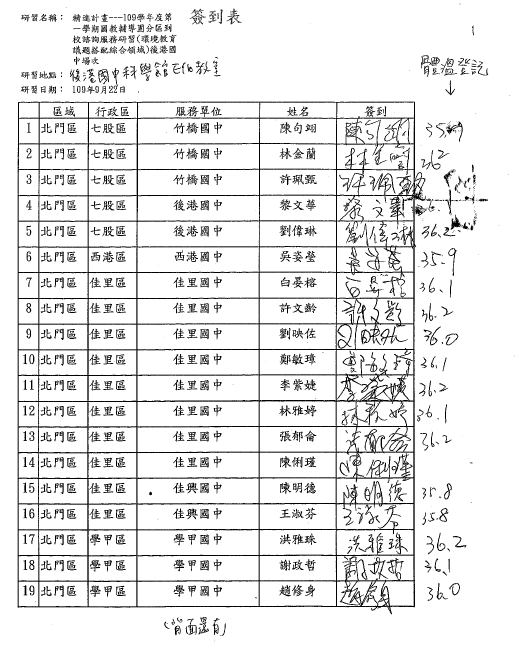 研習名稱： 精進計畫---109學年度第 簽到表
一學期國教輔導團分區到
校諮詢服務研習(環境教育
議題搭配綜合領域)後港國
中場次
1
體溫登記
↓
研習地點： 後港國中科學館
研習日期： 109年9月22日
區域 行政區 服務單位 姓名 簽到
1 北門區 七股區 竹橋國中 陳句翊 陳句翊
2 北門區 七股區 竹橋國中 林金蘭 林金蘭
3 北門區 七股區 竹橋國中 許珮甄 許珮甄
4 北門區 七股區 後港國中 黎文華 黎文華
5 北門區 七股區 後港國中 劉偉琳 劉偉琳 36.2
6 北門區 西港區 西港國中 吳姿瑩 吳姿瑩 35.9
7 北門區 佳里區 佳里國中 白晏榕 白晏榕 36.1
8 北門區 佳里區 佳里國中 許文齡 許文齡 36.2
9 北門區 佳里區 佳里國中 劉映佐 刘映佐 36.0
10 北門區 佳里區 佳里國中 鄭敏璋 鄭敏璋 36.1
11 北門區 佳里區 佳里國中 李紫婕 李紫婕 36.2
12 北門區 佳里區 佳里國中 林雅婷 林雅婷 36.1
13 北門區 佳里區 佳里國中 張郁侖 張郁侖 36.2
14 北門區 佳里區 佳里國中 陳俐瑾 陳俐瑾
15 北門區 佳里區 佳興國中 陳明德 陳明德 35.8
16 北門區 佳里區 佳興國中 王淑芬 王淑芬 35.8
17 北門區 學甲區 學甲國中 洪雅珠 洪雅珠 36.2
18 北門區 學甲區 學甲國中 謝政哲 謝政哲 36.1
19 北門區 學甲區 學甲國中 趙修身 36.0
(背面還有)